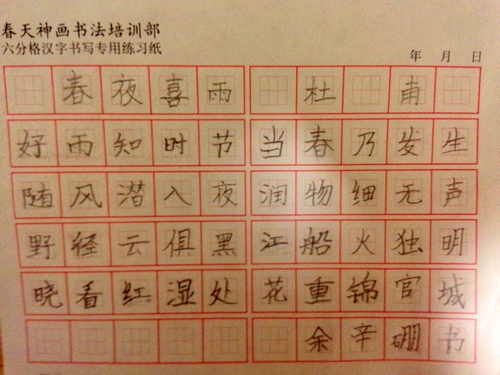 春天神画书法培训部
六分格汉字书写专用练习纸
年 月 日
春夜喜雨 杜甫
好雨知时节 当春乃发生
随风潜入夜 润物细无声
野径云俱黑 江船火独明
晓看红湿处 花重锦官城
余辛硼书